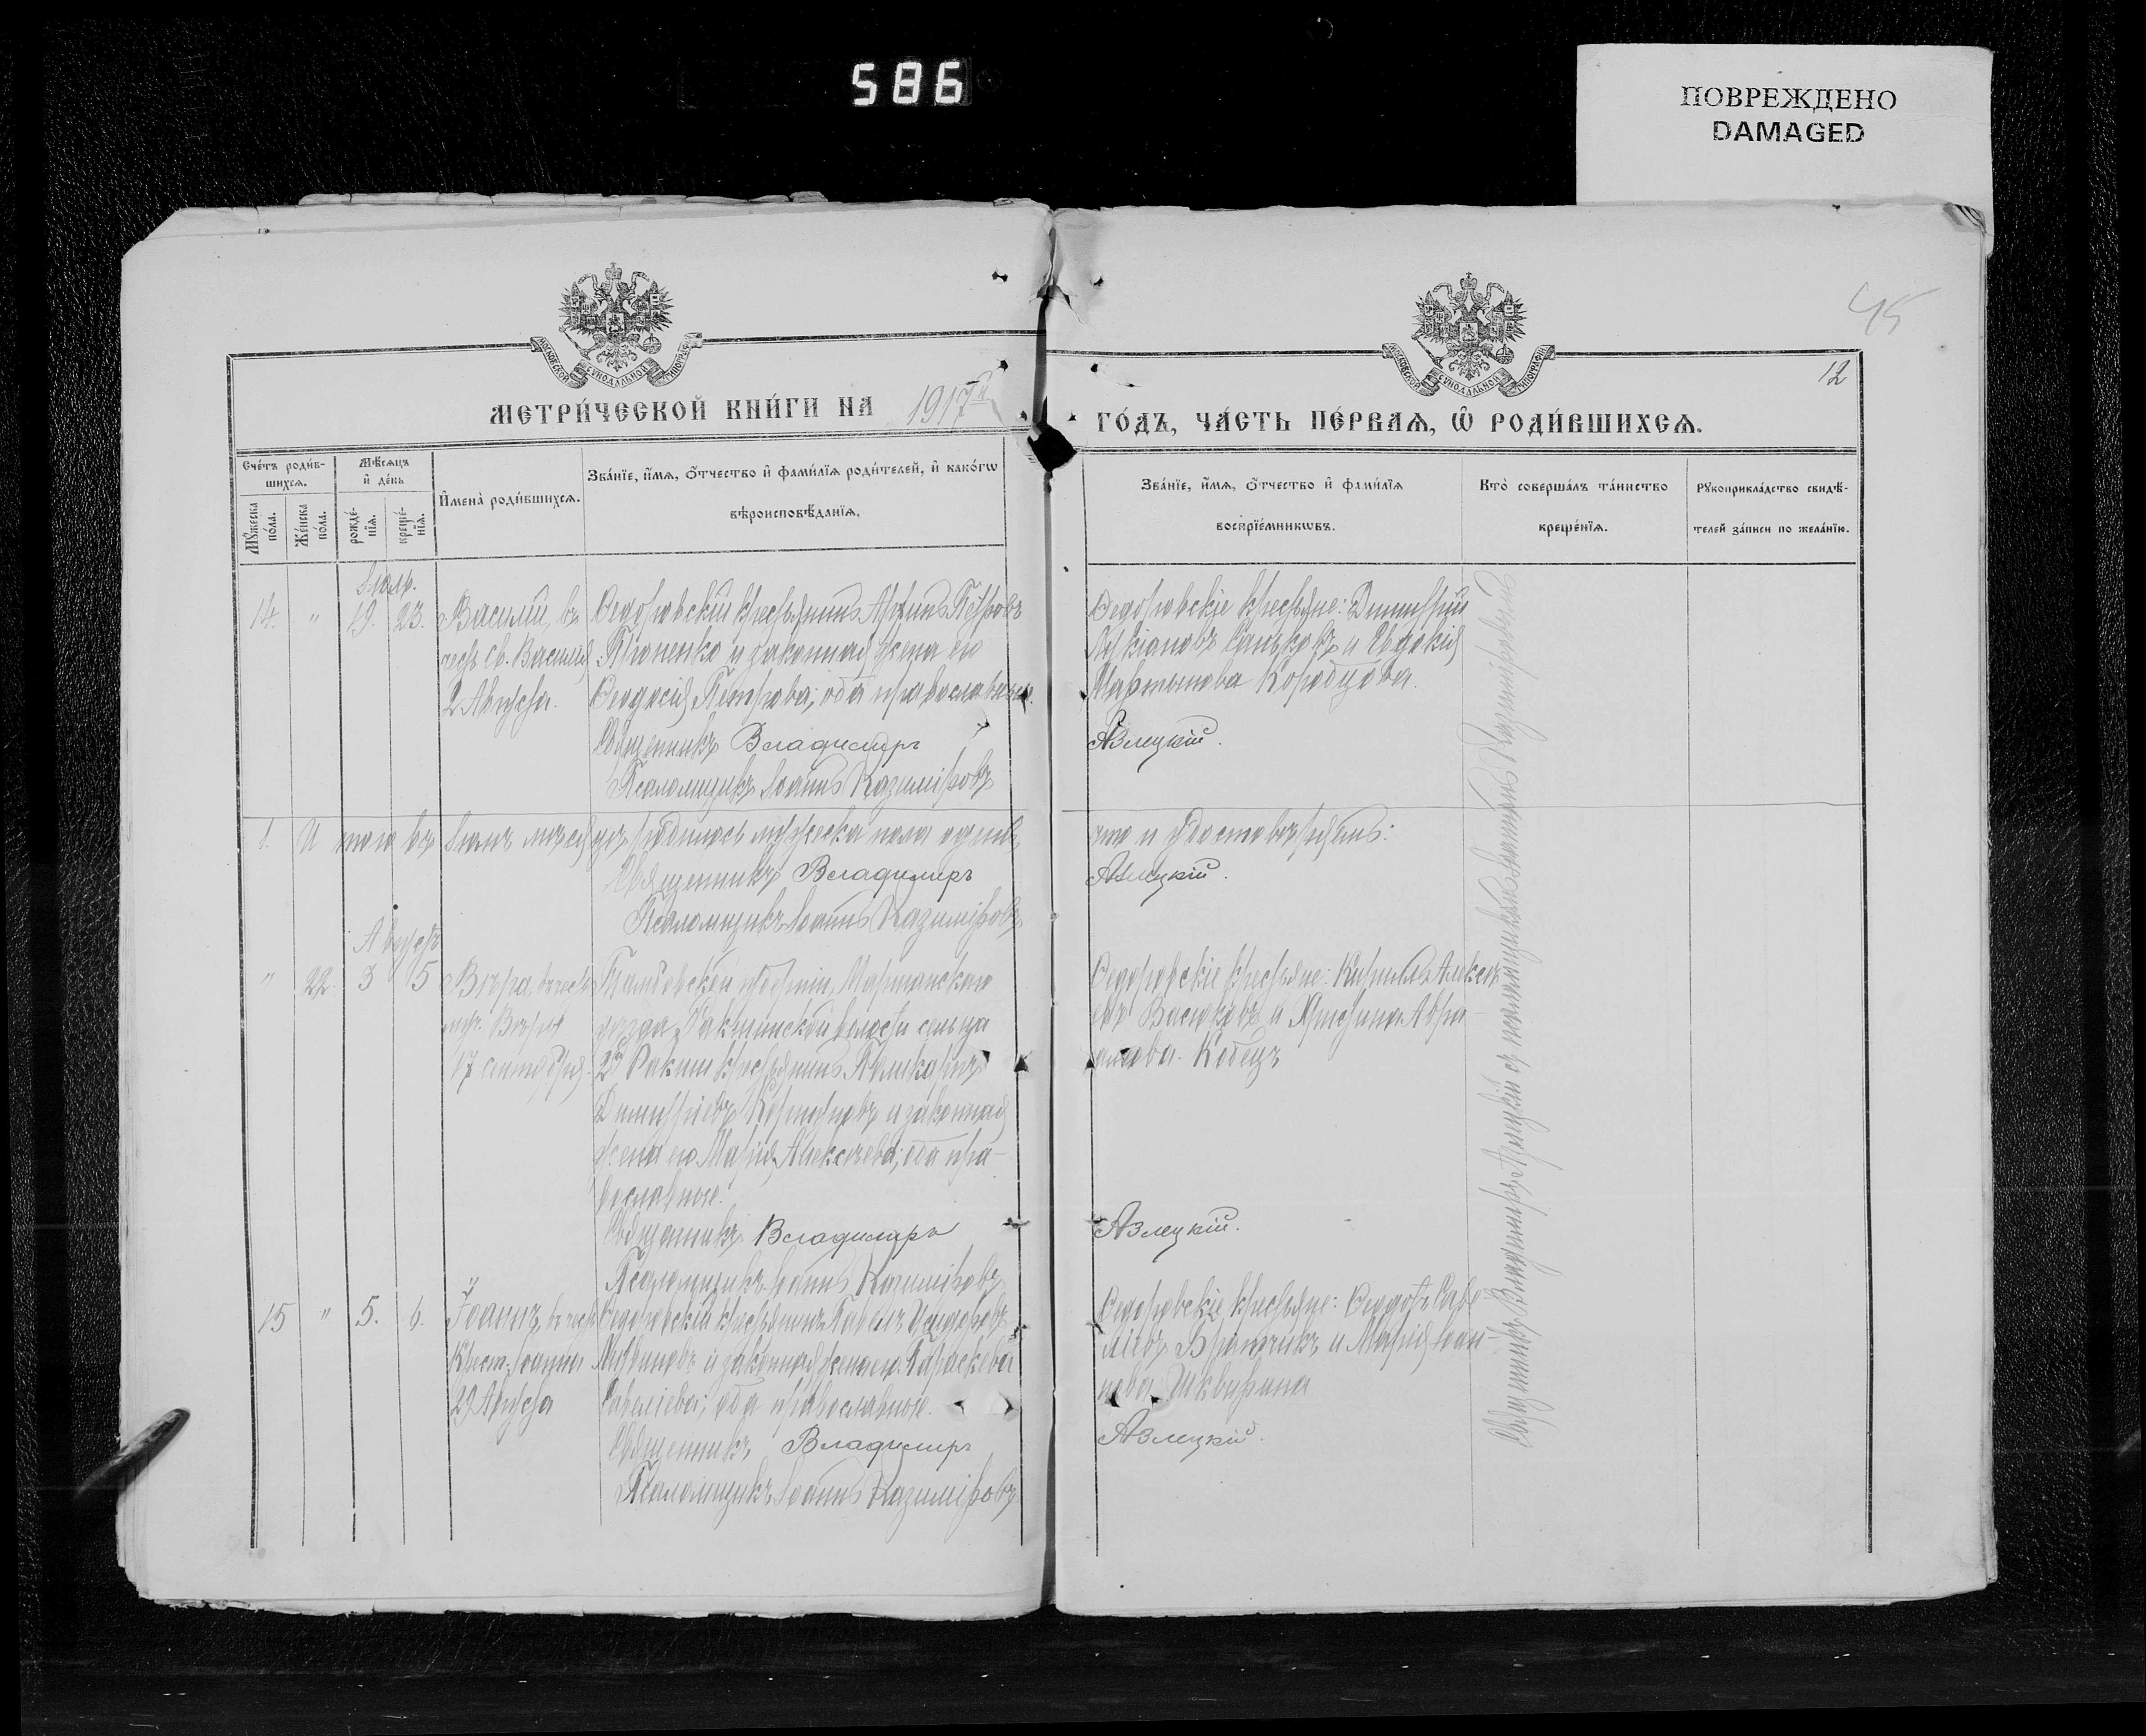 586
ПОВРЕЖДЕНО
DAMAGED
45
12
МОСКОВСКОЙ СѴНОДАЛЬНОЙ ТИПОГРАФІИ
МОСКОВСКОЙ СѴНОДАЛЬНОЙ ТИПОГРАФІИ
МЕТРИ́ЧЕСКОЙ КНИ́ГИ НА 1917й
ГО́ДЪ, ЧА́СТЬ ПЕ́РВАѦ, Ѡ҆ РОДИ́ВШИХСѦ.
Сче́тъ роди́в-
шихсѧ.
Мꙋ́жеска по́ла.
Же́нска по́ла.
Мѣ́сѧцъ и҆ де́нь
рожде́-нїѧ.
креще́-нїѧ.
И҆мена̀ роди́вшихсѧ.
Зва́нїе, и҆́мѧ, ѻ҆́тчество и҆ фами́лїѧ роди́телей, и҆ како́гѡ
вѣроисповѣ́данїѧ.
Зва́нїе, и҆́мѧ, ѻ҆́тчество и҆ фами́лїѧ
воспрїе́мникѡвъ.
Кто̀ соверша́лъ та́инство
креще́нїѧ.
Рꙋкоприкла́дство свидѣ́-
телей за́писи по жела́нїю.
Іюль.
14. " 19. 23.
Василій, въ
честь св. Василія
2 Августа.
Ѳедоровскій крестьянинъ Петровъ
и законная жена его
Ѳеодосія Петрова; оба православные.
Священникъ Владимиръ
Псаломщикъ Іоаннъ Казиміровъ
Ѳедоровскіе крестьяне: Димитрій
и Евдокія
Мартынова
Азлецкій.
1. И того въ Іюлѣ мѣсяцѣ родилось мужеска пола одинъ,
Священникъ Владимиръ
Псаломщикъ Іоаннъ Казиміровъ
что и удостовѣряемъ:
Азлецкій.
Августъ
" 22 3 5
Вѣра, въ честь
муч. Вѣры
17 сентября.
Тамбовской губерніи, Моршанскаго
уѣзда, Ракшинской волости сельца
2й Ракши крестьянинъ
Димитріевъ и законная
жена его Марія Алексѣева; оба пра-
вославные.
Священникъ Владимиръ
Псаломщикъ Іоаннъ Казиміровъ
Ѳедоровскіе крестьяне: Кириллъ Алексѣ-
евъ и Христина Авра-
амова Кобецъ
Азлецкій.
15 " 5. 6.
Іоаннъ, въ честь
Крест. Іоанна
29 Августа
Ѳедоровскій крестьянинъ Павелъ
и законная жена его Параскева
Савеліева; оба православные.
Священникъ Владимиръ
Псаломщикъ Іоаннъ Казиміровъ
Ѳедоровскіе крестьяне: Ѳеодотъ Саве-
ліевъ и Марія Іоан-
нова Шквирина
Азлецкій.
Священникъ Владимиръ Азлецкій съ псаломщикомъ Іоанномъ Казиміровымъ